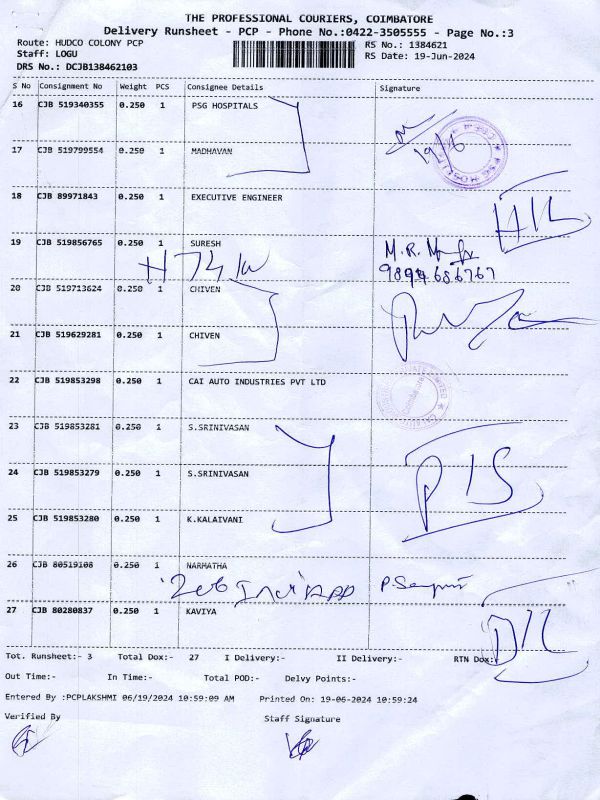 THE PROFESSIONAL COURIERS, COIMBATORE
Delivery Runsheet - PCP - Phone No.:0422-3505555 - Page No.:3
Route: HUDCO COLONY PCP RS No.: 1384621
Staff: LOGU RS Date: 19-Jun-2024
DRS No.: DCJB138462103
S No Consignment No Weight PCS Consignee Details Signature
16 CJB 519340355 0.250 1 PSG HOSPITALS
19/6
17 CJB 519799554 0.250 1 MADHAVAN
18 CJB 89971843 0.250 1 EXECUTIVE ENGINEER
19 CJB 519856765 0.250 1 SURESH M.R.
9894686767
20 CJB 519713624 0.250 1 CHIVEN
21 CJB 519629281 0.250 1 CHIVEN
22 CJB 519853298 0.250 1 CAI AUTO INDUSTRIES PVT LTD
23 CJB 519853281 0.250 1 S.SRINIVASAN
24 CJB 519853279 0.250 1 S.SRINIVASAN
25 CJB 519853280 0.250 1 K.KALAIVANI
26 CJB 80519108 0.250 1 NARMATHA
27 CJB 80280837 0.250 1 KAVIYA
Tot. Runsheet:- 3 Total Dox:- 27 I Delivery:- II Delivery:- RTN Dox:-
Out Time:- In Time:- Total POD:- Delvy Points:-
Entered By :PCPLAKSHMI 06/19/2024 10:59:09 AM Printed On: 19-06-2024 10:59:24
Verified By Staff Signature